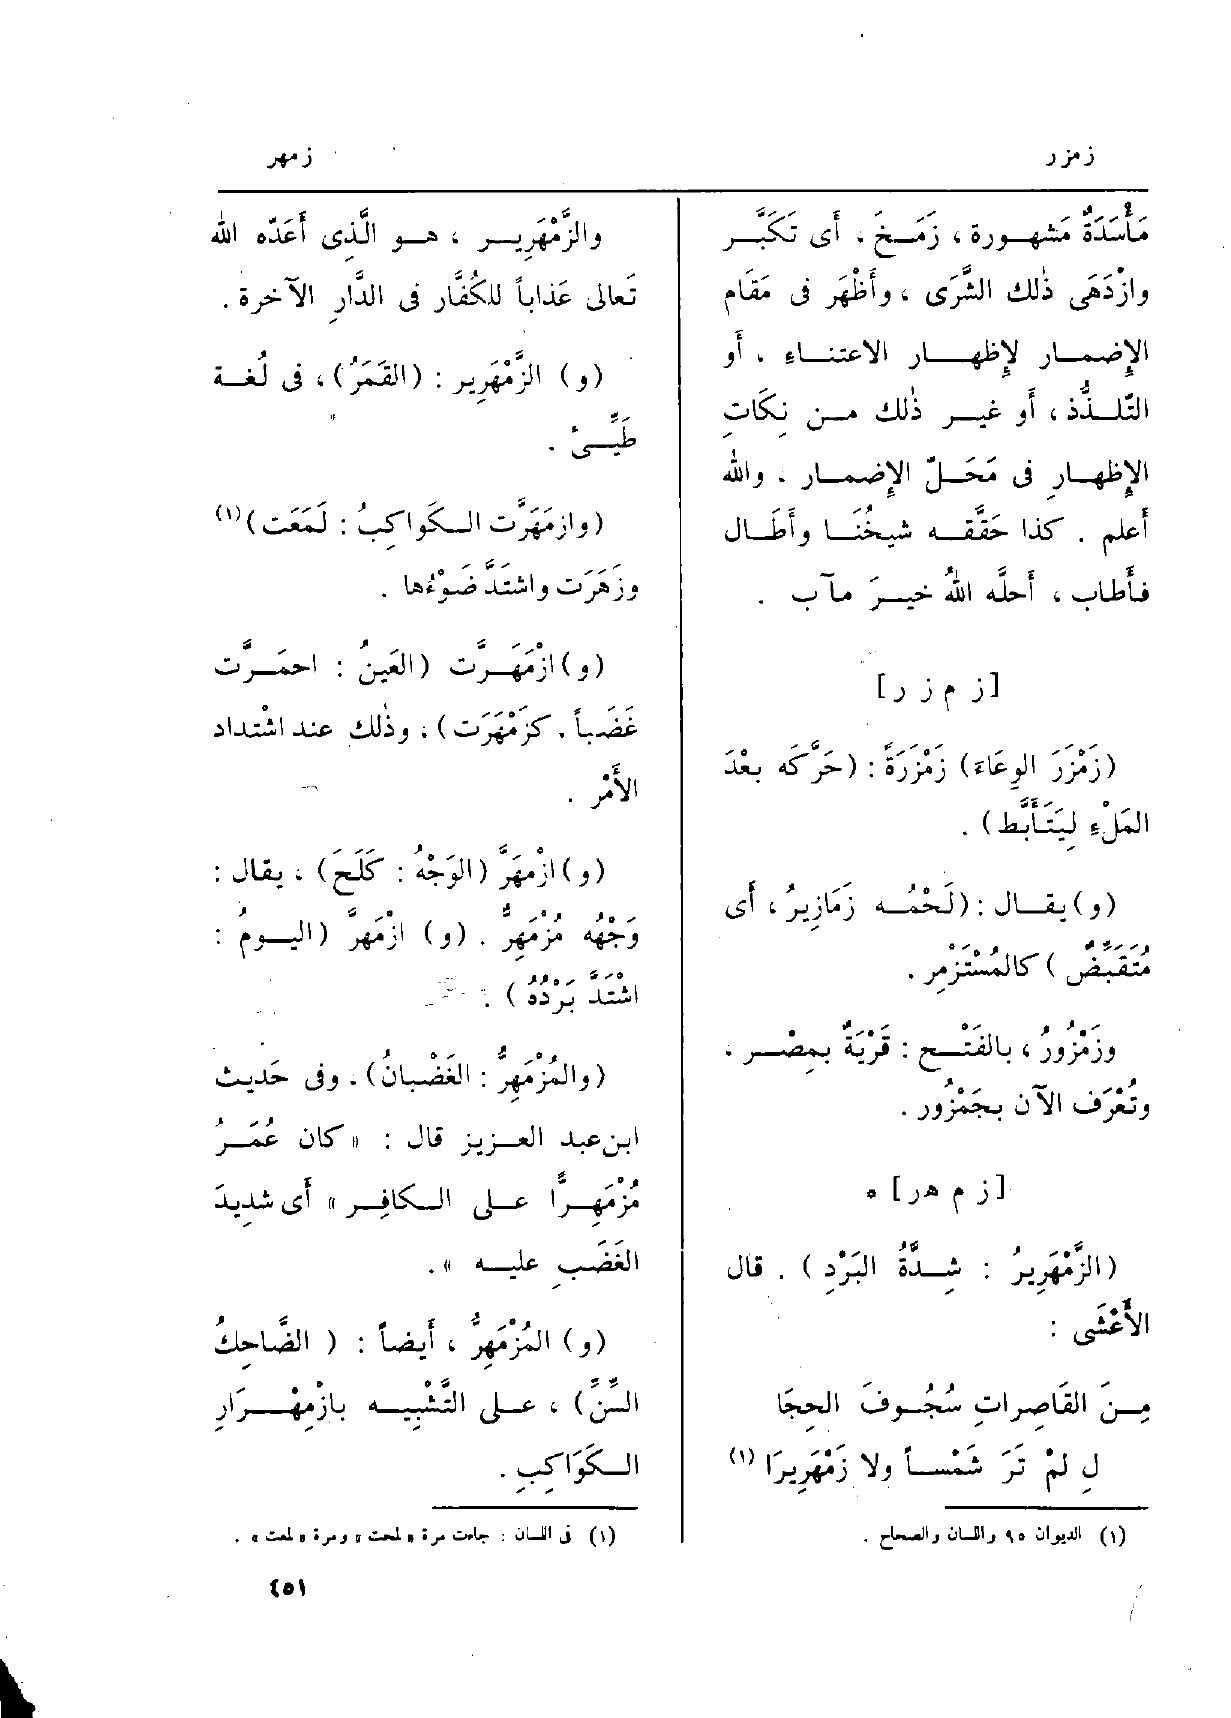 زمزر
زمهر
مَأْسَدَةٌ مَشهورة ، زَمَخَ ، أَى تَكَبَّر
وازْدَهَى ذٰلك الشَّرَى ، وأَظْهَر فى مَقَام
الإِضمار لإِظهار الاعتناءِ ، أَو
التّلذُّذ ، أَو غير ذٰلك من نِكَاتِ
الإِظهارِ فى مَحَلّ الإِضمار . والله
أَعلم . كذا حَقَّقه شيخُنَا وأَطَال
فأَطاب ، أَحلَّه اللهُ خيرَ مآب .
[ز م ز ر]
(زَمْزَرَ الوِعَاءَ) زَمْزَرَةً : (حَرَّكَه بعْدَ
المَلْءِ لِيَتَأَبَّطَ) .
(و) يقال : (لَحْمُه زَمَازِيرُ ، أَى
مُتَقَبِّضٌ) كالمُسْتَزْمِرِ .
وزَمْزُورُ ، بالفَتْح : قَرْيَةٌ بمِصْر ،
وتُعْرَف الآن بجَمْزُور .
[ز م هر] *
(الزَّمْهَرِيرُ : شِدَّةُ البَرْدِ) . قال
الأَعْشَى :
مِنَ القَاصِراتِ سُجُوفَ الحِجَا
لِ لمْ تَرَ شَمْساً ولا زَمْهَرِيرَا (١)
(١) الديوان ٩٥ واللسان والصحاح .
والزَّمْهَرِير ، هو الَّذِى أَعَدّه الله
تَعالى عَذاباً للكُفَّار فى الدَّارِ الآخرة .
(و) الزَّمْهَرِير : (القَمَرُ) ، فى لُغة
طَيِّىء .
(وازمَهَرَّت الكَواكِبُ : لَمَعَت) (١)
وزَهَرَت واشتَدَّ ضَوْءُها .
(و) ازْمَهَرَّت (العَينُ : احمَرَّت
غَضَباً . كزَمْهَرَت) ، وذٰلك عند اشْتداد
الأَمْر .
(و) ازْمهَرَّ (الوَجْهُ : كَلَحَ) ، يقال :
وَجْهُه مُزْمَهِرٌّ . (و) ازْمهَرَّ (اليومُ :
اشْتَدَّ بَرْدُهُ) .
(والمُزْمَهِرُّ : الغَضْبانُ) . وفى حَديث
ابن عبد العزيز قال : « كان عُمَرُ
مُزْمَهِرًّا على الكافِر » أَى شدِيدَ
الغَضَبِ عليه » .
(و) المُزْمَهِرُّ ، أَيضاً : (الضَّاحِكُ
السِّنِّ) ، على التَّشْبِيه بازْمِهْرَارِ
الكَوَاكِبِ .
(١) فى اللسان : جاءت مرة « لمحت » ومرة « لمعت » .
٤٥١